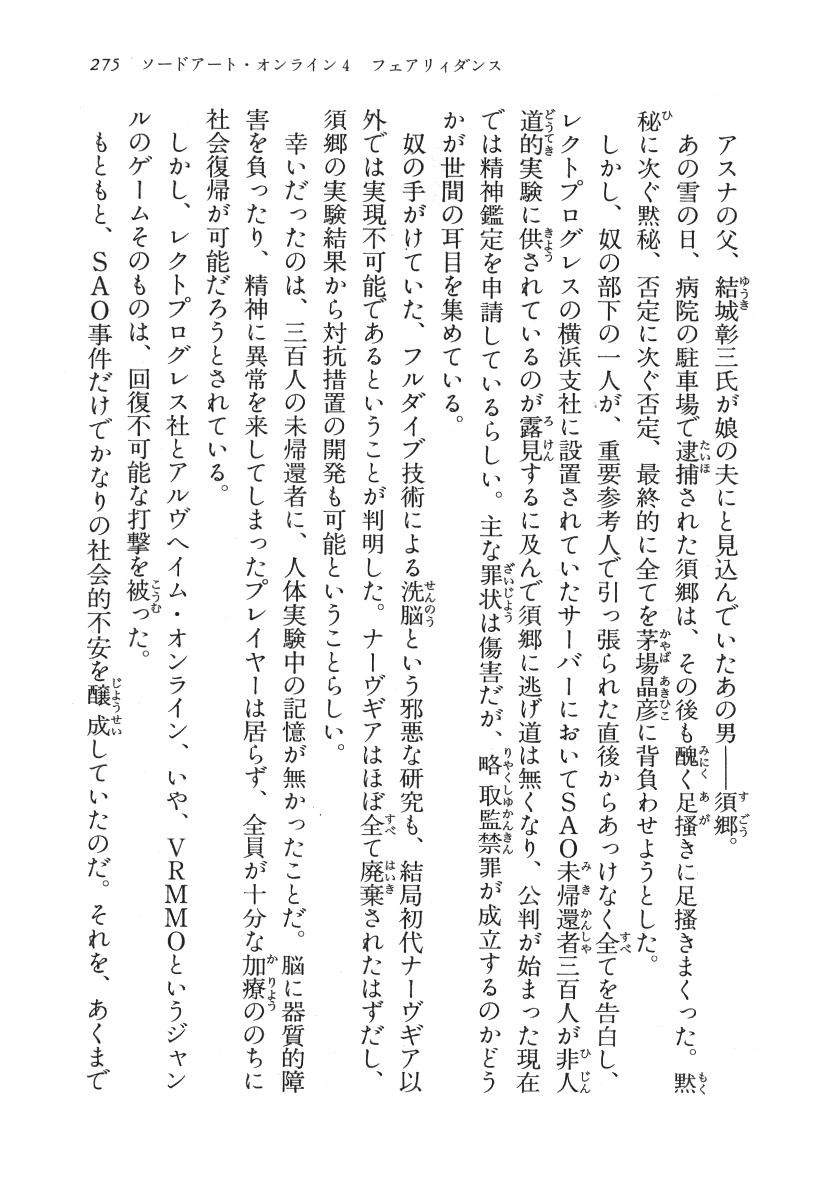 275　ソードアート・オンライン4　フェアリィダンス
　アスナの父、結城彰三氏が娘の夫にと見込んでいたあの男――須郷。
　あの雪の日、病院の駐車場で逮捕された須郷は、その後も醜く足掻きに足掻きまくった。黙
秘に次ぐ黙秘、否定に次ぐ否定、最終的に全てを茅場晶彦に背負わせようとした。
　しかし、奴の部下の一人が、重要参考人で引っ張られた直後からあっけなく全てを告白し、
レクトプログレスの横浜支社に設置されていたサーバーにおいてSAO未帰還者三百人が非人
道的実験に供されているのが露見するに及んで須郷に逃げ道は無くなり、公判が始まった現在
では精神鑑定を申請しているらしい。主な罪状は傷害だが、略取監禁罪が成立するのかどう
かが世間の耳目を集めている。
　奴の手がけていた、フルダイブ技術による洗脳という邪悪な研究も、結局初代ナーヴギア以
外では実現不可能であるということが判明した。ナーヴギアはほぼ全て廃棄されたはずだし、
須郷の実験結果から対抗措置の開発も可能ということらしい。
　幸いだったのは、三百人の未帰還者に、人体実験中の記憶が無かったことだ。脳に器質的障
害を負ったり、精神に異常を来してしまったプレイヤーは居らず、全員が十分な加療ののちに
社会復帰が可能だろうとされている。
　しかし、レクトプログレス社とアルヴヘイム・オンライン、いや、VRMMOというジャン
ルのゲームそのものは、回復不可能な打撃を被った。
　もともと、SAO事件だけでかなりの社会的不安を醸成していたのだ。それを、あくまで